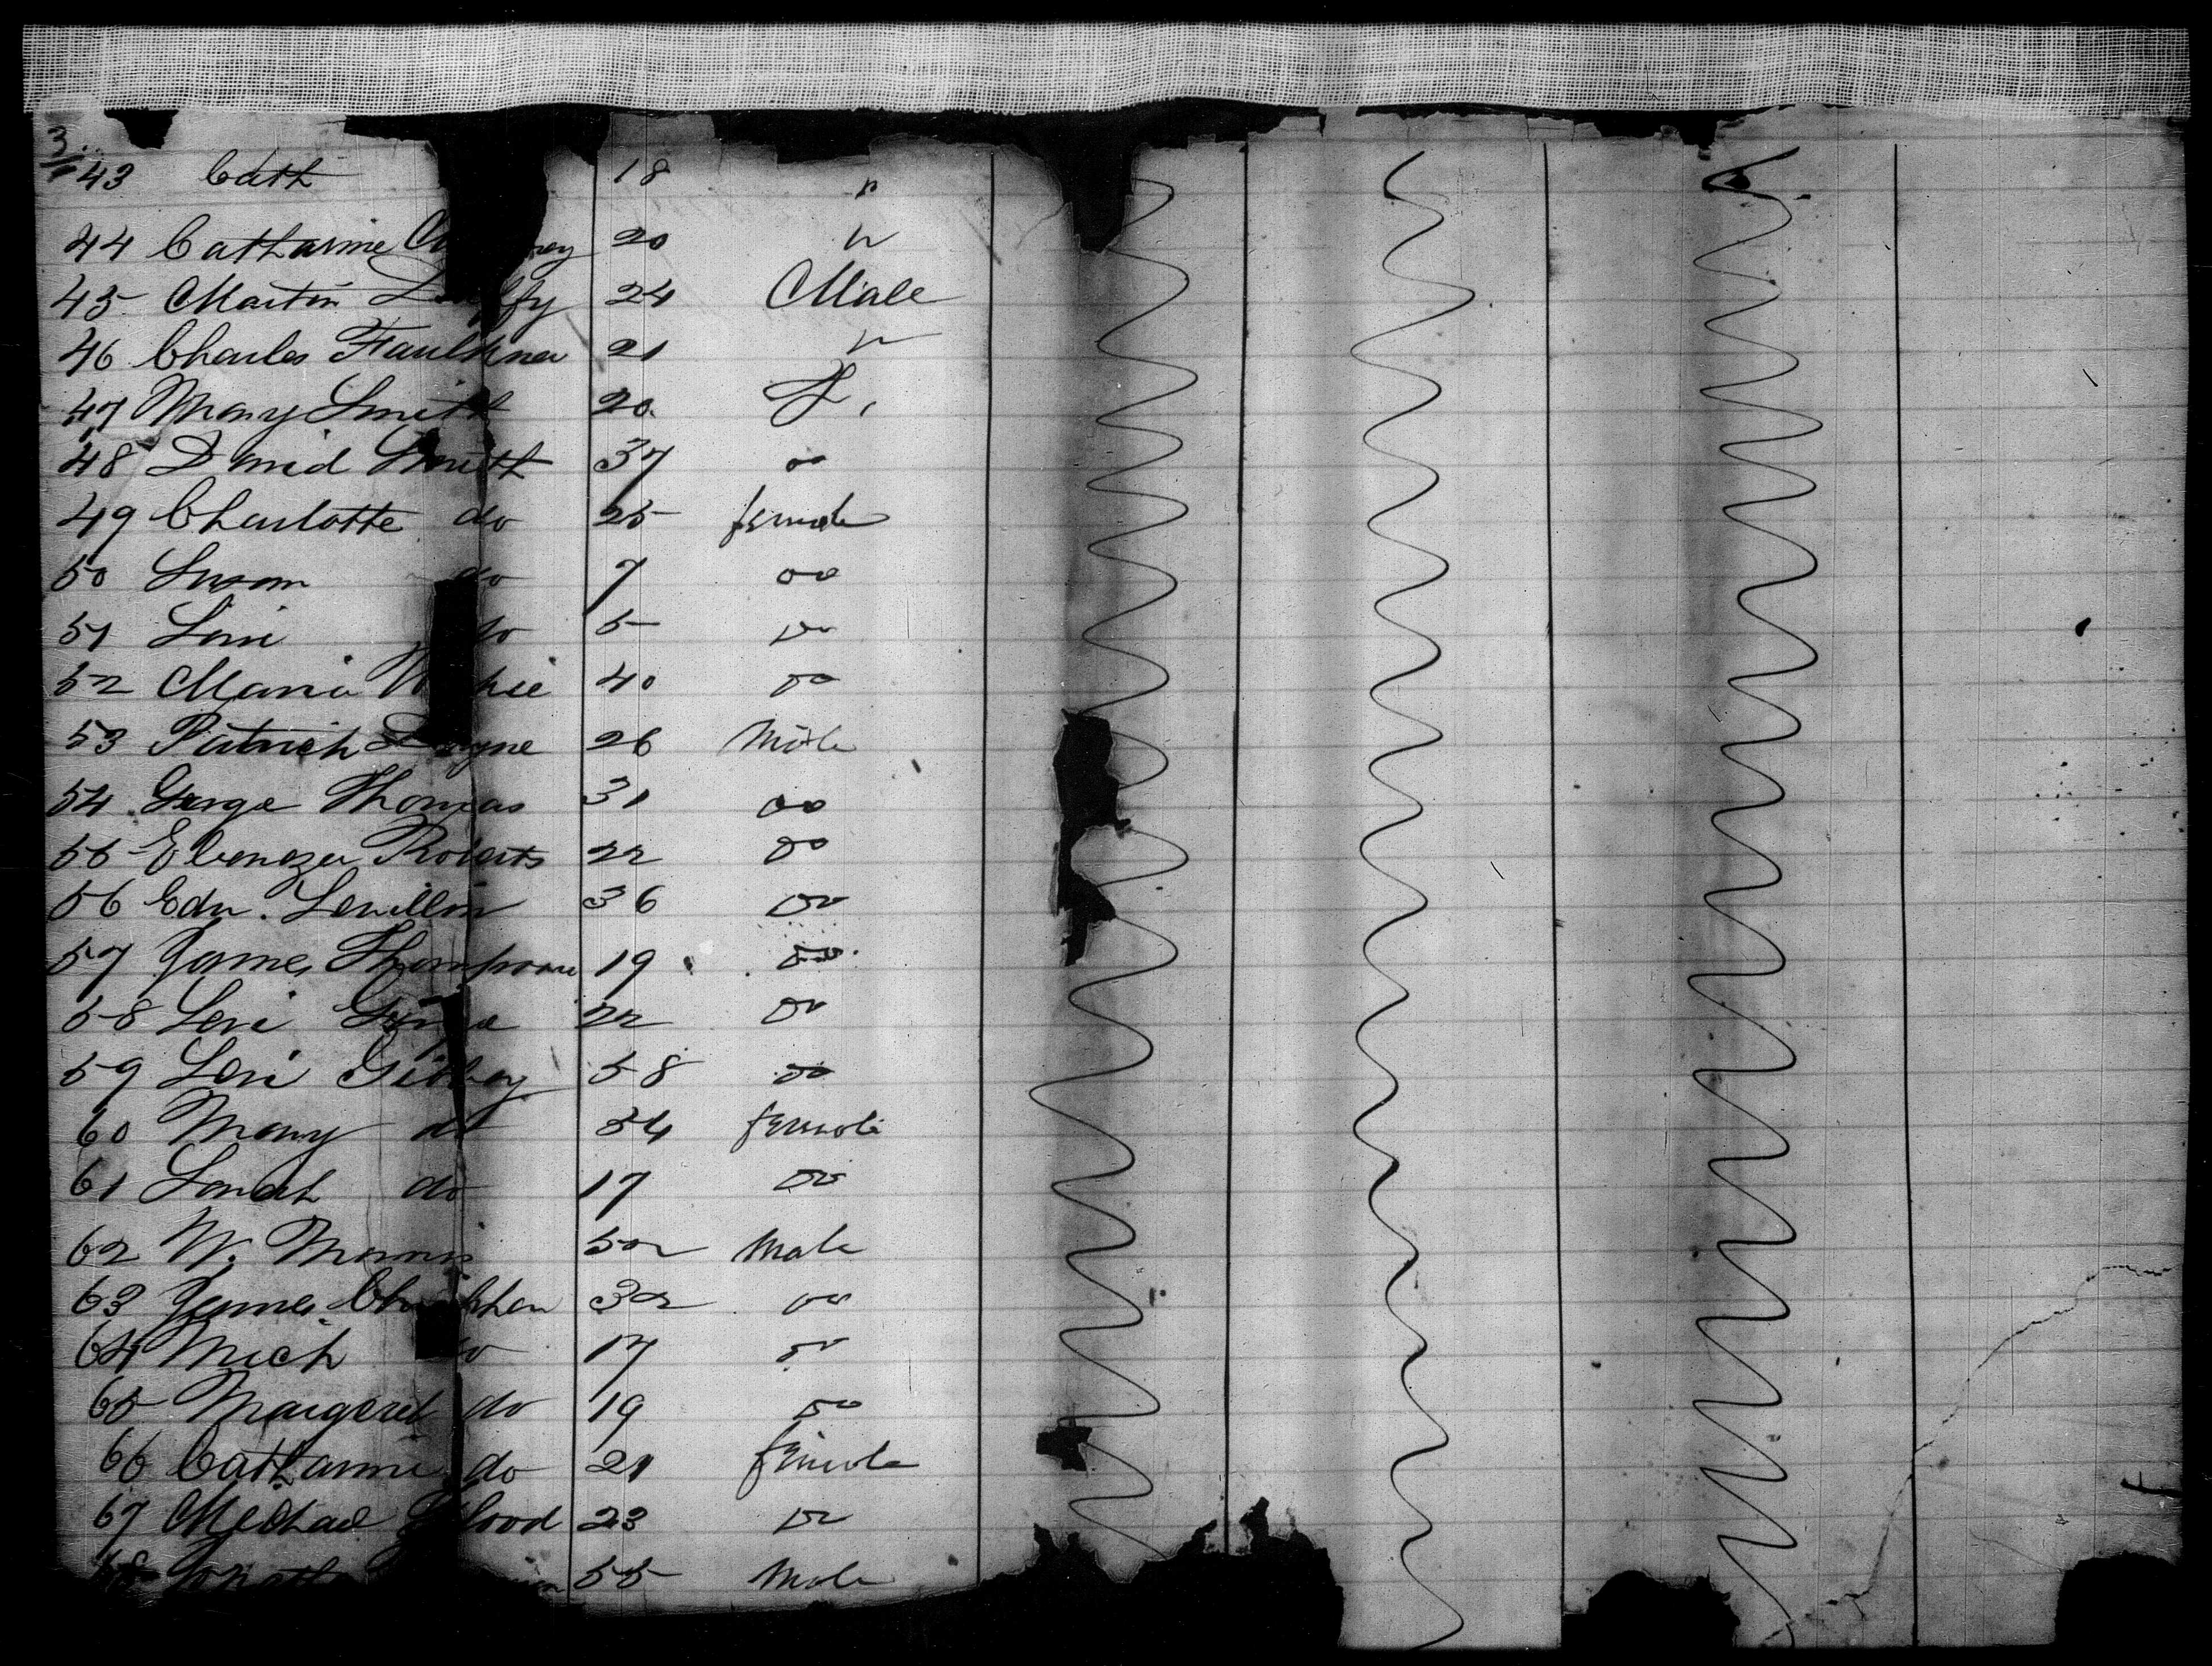 3
43 Cath 18 "
44 Catharine 20 "
45 Martin 24 Male
46 Charles Faulkner 21 "
47 Mary Smith 20 F,
48 David Smith 37 do
49 Charlotte do 25 female
50 Susan do 7 do
51 do 5 do
52 Maria 40 do
53 Patrick 26 Male
54 George Thomas 31 do
55 Ebenezer Roberts 22 do
56 Edw. 36 do
57 James Thompson 19 do
58 Levi 22 do
59 Levi 58 do
60 Mary do 34 female
61 Sarah do 17 do
62 W. Morris 52 Male
63 James 32 do
64 Mich do 17 do
65 Margeret do 19 do
66 Catharine do 21 female
67 Michael 23 do
68 55 Male